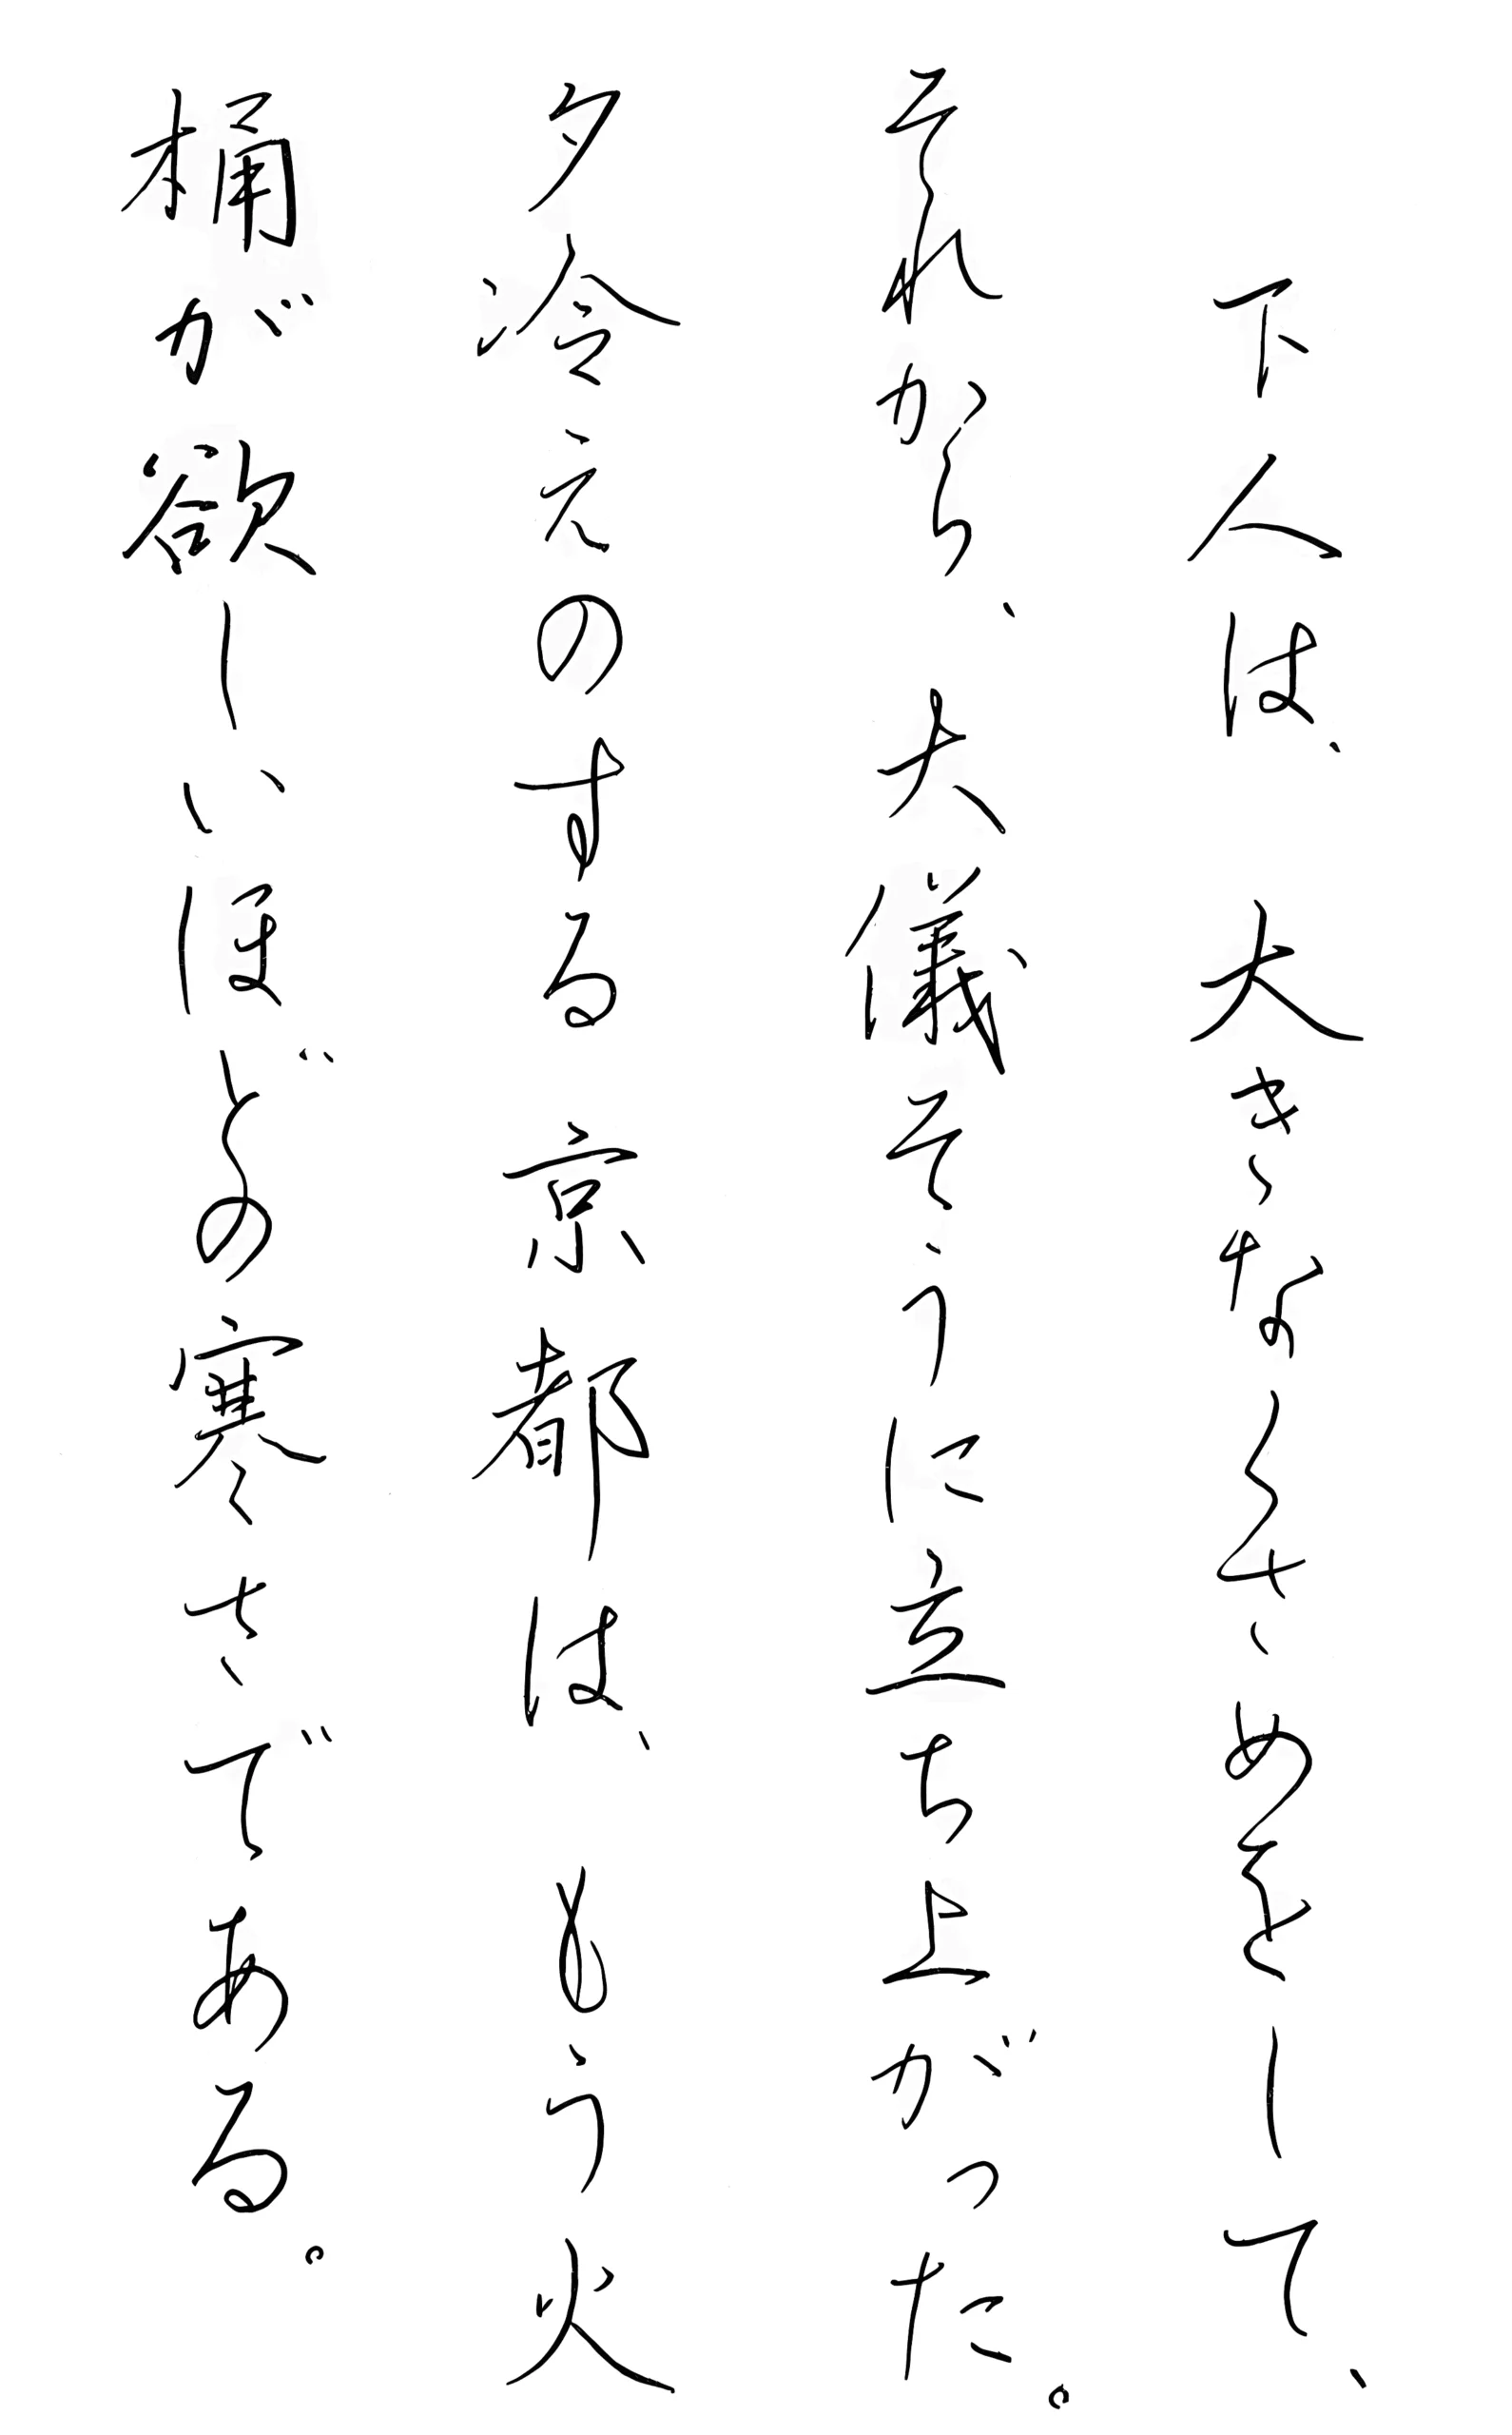 下人は、大きなくさめをして、
それから、大儀そうに立ち上がった。
夕冷えのする京都は、もう火
桶が欲しいほどの寒さである。